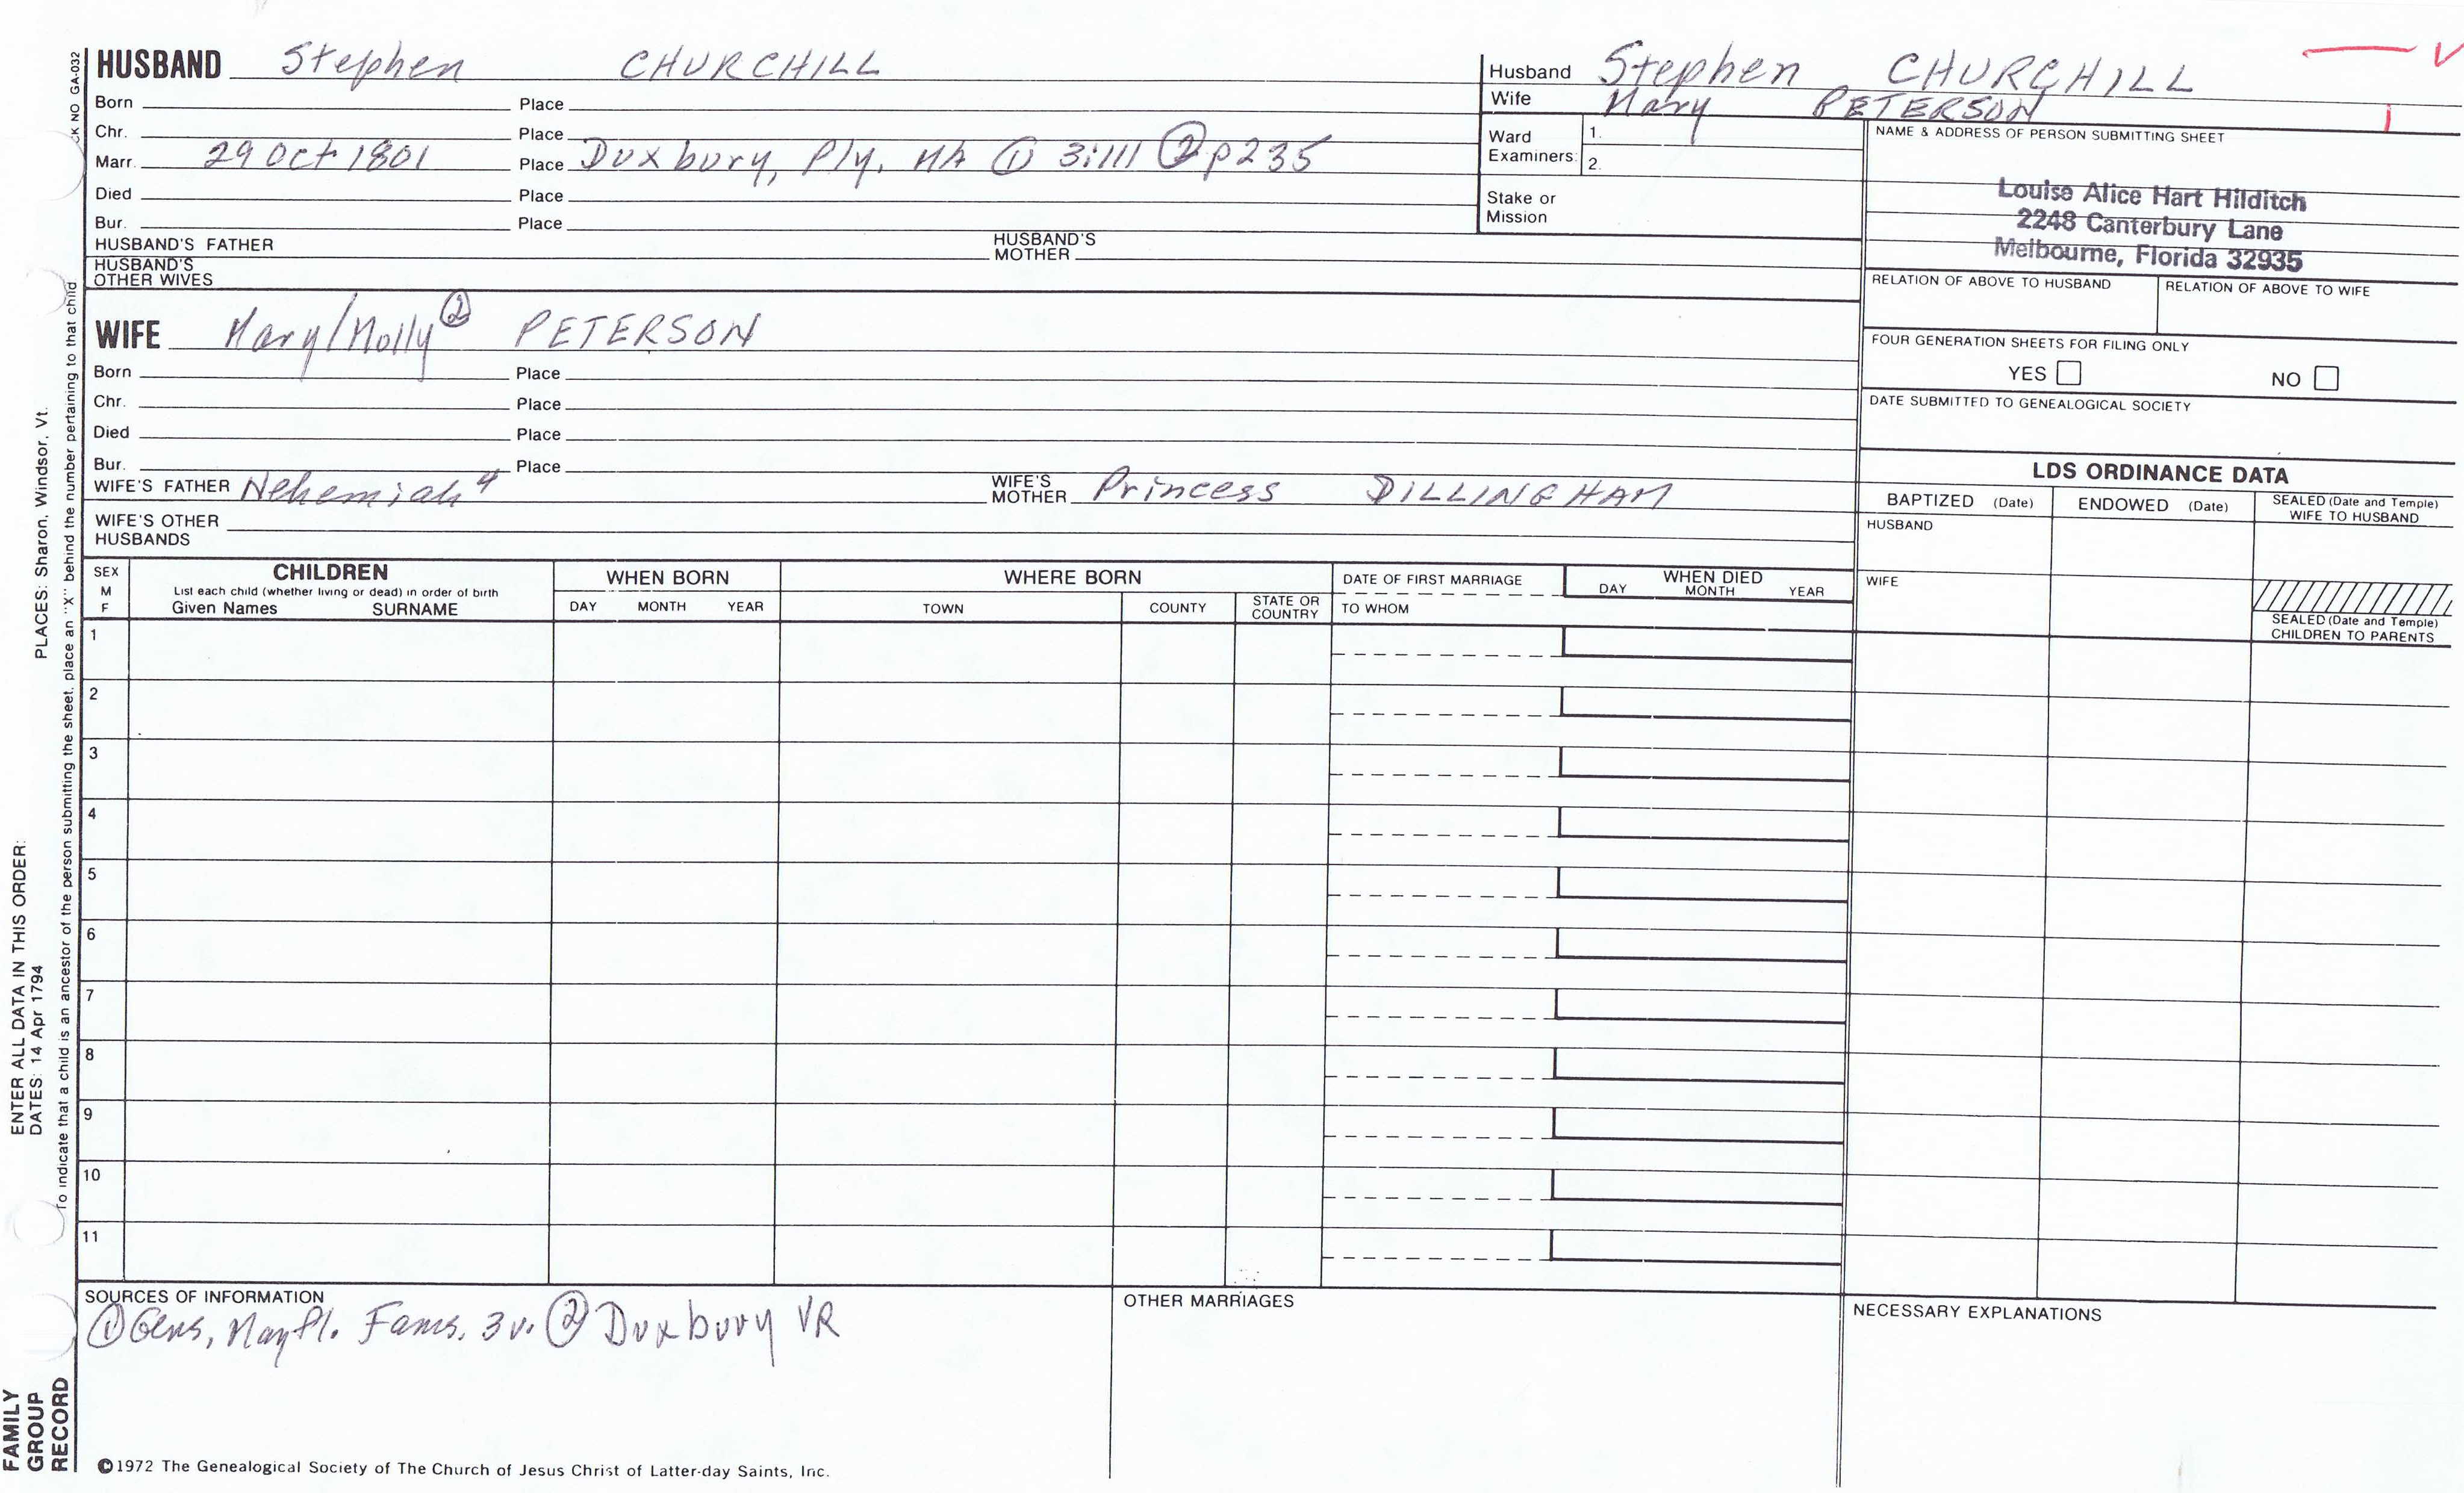 HUSBAND Stephen CHURCHILL
Born Place
Chr. Place
Marr. 29 Oct 1801 Place Duxbury, Ply. MA ① 3:111 ② p235
Died Place
Bur. Place
HUSBAND'S FATHER HUSBAND'S MOTHER
HUSBAND'S OTHER WIVES
Husband Stephen CHURCHILL
Wife Mary PETERSON
Ward Examiners: 1.
2.
Stake or Mission
NAME & ADDRESS OF PERSON SUBMITTING SHEET
Louise Alice Hart Hilditch
2248 Canterbury Lane
Melbourne, Florida 32935
RELATION OF ABOVE TO HUSBAND RELATION OF ABOVE TO WIFE
FOUR GENERATION SHEETS FOR FILING ONLY
YES NO
DATE SUBMITTED TO GENEALOGICAL SOCIETY
WIFE Mary/Molly② PETERSON
Born Place
Chr. Place
Died Place
Bur. Place
WIFE'S FATHER Nehemiah⁴ WIFE'S MOTHER Princess DILLINGHAM
WIFE'S OTHER HUSBANDS
LDS ORDINANCE DATA
BAPTIZED (Date) ENDOWED (Date) SEALED (Date and Temple) WIFE TO HUSBAND
HUSBAND
WIFE
SEALED (Date and Temple) CHILDREN TO PARENTS
SEX M F CHILDREN WHEN BORN WHERE BORN DATE OF FIRST MARRIAGE WHEN DIED
List each child (whether living or dead) in order of birth
Given Names SURNAME DAY MONTH YEAR TOWN COUNTY STATE OR COUNTRY TO WHOM DAY MONTH YEAR
1
2
3
4
5
6
7
8
9
10
11
SOURCES OF INFORMATION
① Gens, Mayfl. Fams. 3v. ② Duxbury VR
OTHER MARRIAGES
NECESSARY EXPLANATIONS
©1972 The Genealogical Society of The Church of Jesus Christ of Latter-day Saints, Inc.
FAMILY
GROUP
RECORD
ENTER ALL DATA IN THIS ORDER:
DATES: 14 Apr 1794 PLACES: Sharon, Windsor, Vt.
To indicate that a child is an ancestor of the person submitting the sheet, place an "X" behind the number pertaining to that child
CK NO GA-032